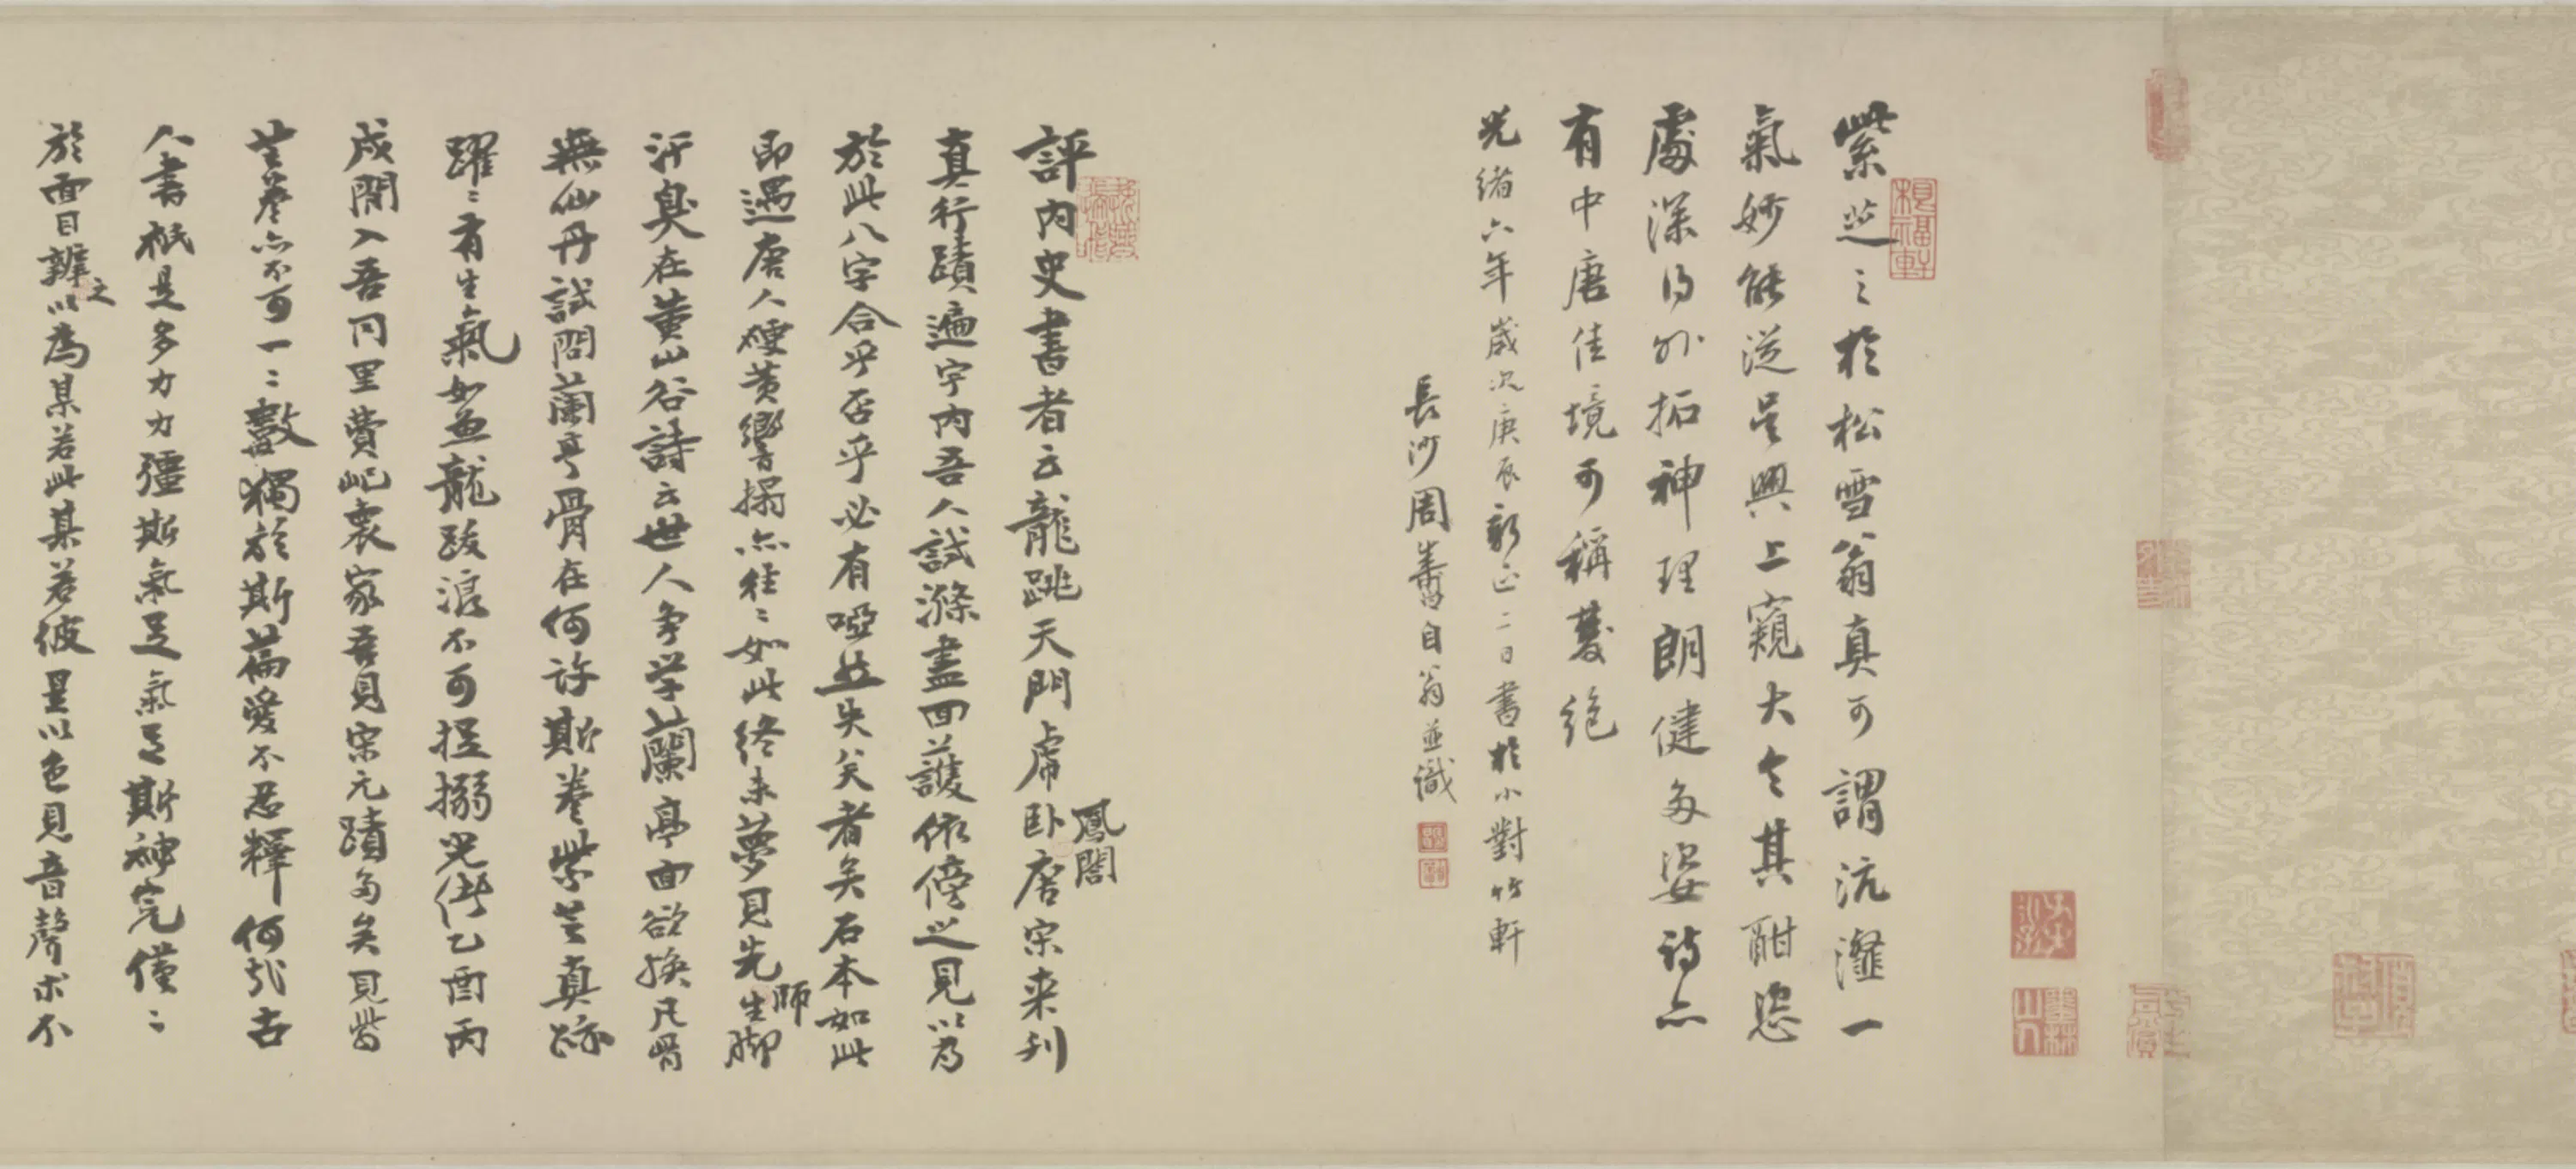 紫芝之於松雪翁真可謂沆瀣一
氣妙能從吴興上窺大令其酣恣
處深得外拓神理朗健多姿詩亦
有中唐佳境可稱雙絕
光緒六年歲次庚辰新正二日書於小對竹軒
長沙周壽自翁並識
評内史書者云龍跳天門虎卧鳳閣唐宋来刋
真行蹟遍宇内吾人試滌盡回護依傍之見以為
於此八字合乎否乎必有啞然失笑者矣石本如此
即遇唐人硬黄響搨亦往〻如此終未夢見先生師脚
汗臭在黄山谷詩云世人争学蘭亭面欲换凡骨
無仙丹試問蘭亭骨在何許斯卷紫芝真跡
躍〻有生氣如魚龍跋浪不可捉搦光緒乙酉丙
戌間入吾同里費屺褱家吾見宋元蹟多矣見紫
芝卷亦不可一〻數獨於斯篇愛不忍釋何哉古
人書祇是多力力彊斯氣足氣足斯神完僅〻
於面目辨之以為某若此某若彼是以色見音聲求不